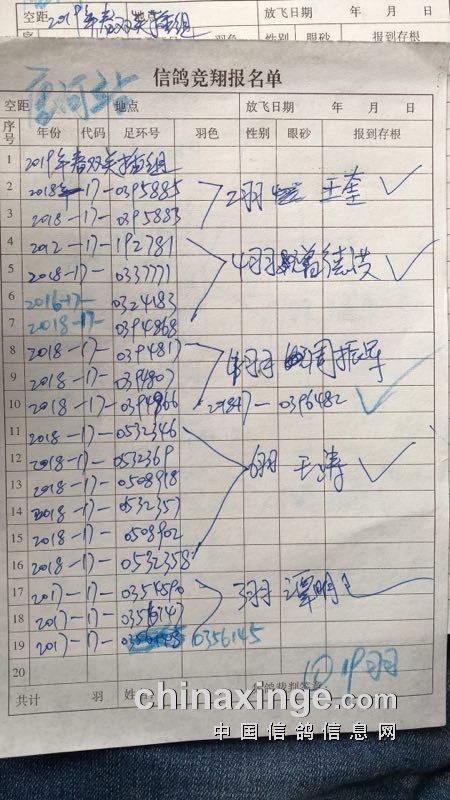 2019年春双关插组
空距 地点 放飞日期 年 月 日
羽色 性别 眼砂 报到存根
信鸽竞翔报名单
唐河站
空距 地点 放飞日期 年 月 日
序号 年份 代码 足环号 羽色 性别 眼砂 报到存根
1 2019年春双关插组
2 2018年-17-0395885 2羽 王奎 ✓
3 2018-17-0395883
4 2012-17-192781
5 2018-17-0337771 4羽 ✓
6 2016-17-0324183
7 2018-17-0394868
8 2018-17-0394817
9 2018-17-0394807 4羽 周振军
10 2018-17-0394966 2018-17-0396482 ✓
11 2018-17-0532346
12 2018-17-0532369 6羽 王涛 ✓
13 2018-17-0508918
14 2018-17-0532357
15 2018-17-0508902
16 2018-17-0532358
17 2017-17-0354590 3羽 谭明
18 2017-17-0356147
19 2017-17- 0356145
20
共计 羽 信鸽裁判签章
19羽
chinaxinge.com
中国信鸽信息网